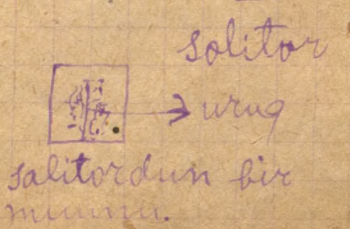 solitor
uruq
salitordun bir